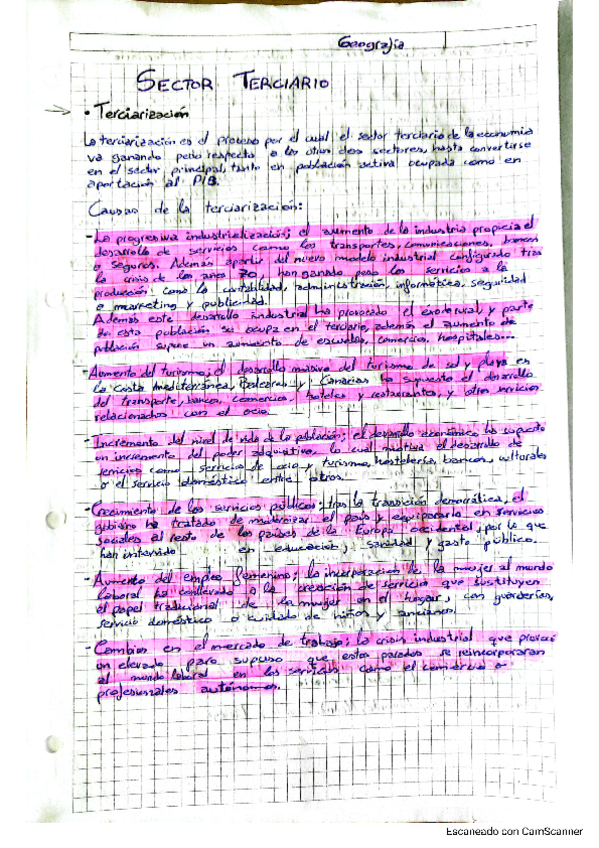 Geografía
SECTOR TERCIARIO
• Terciarización
La terciarización es el proceso por el cual el sector terciario de la economía
va ganando peso respecto a los otros dos sectores, hasta convertirse
en el sector principal, tanto en población activa ocupada como en
aportación al PIB.
Causas de la terciarización:
- La progresiva industrialización; el aumento de la industria propicia el
desarrollo de servicios como los transportes, comunicaciones, bancos
o seguros. Además apartir del nuevo modelo industrial configurado tras
la crisis de los años 70, han ganado peso los servicios a la
producción como la contabilidad, administración, informática, seguridad
e marketing y publicidad.
Además este desarrollo industrial ha provocado el exodo rural, y parte
de esta población se ocupa en el terciario, además el aumento de
población supone un aumento de escuelas, comercios, hospitales...
- Aumento del turismo; el desarrollo masivo del turismo de sol y playa en
la Costa Mediterránea, Baleares y Canarias ha supuesto el desarrollo
del transporte, bancos, comercios, hoteles y restaurantes, y otros servicios
relacionados con el ocio.
- Incremento del nivel de vida de la población; el desarrollo económico ha supuesto
un incremento del poder adquisitivo, lo cual motiva el desarrollo de
servicios como servicio de ocio y turismo, hostelería, bancos, culturales
o el servicio doméstico entre otros.
- Crecimiento de los servicios públicos; tras la transición democrática, el
gobierno ha tratado de modernizar el país y equipararlo en servicios
sociales al resto de los países de la Europa occidental, por lo que
han intervenido en educación, sanidad y gasto público.
- Aumento del empleo femenino; la incorporación de la mujer al mundo
laboral ha conllevado a la creación de servicios que sustituyen
el papel tradicional de la mujer en el hogar, con guarderías,
servicio doméstico o cuidado de niños y ancianos.
- Cambios en el mercado de trabajo; la crisis industrial que provocó
un elevado paro supuso que estos parados se reincorporaran
al mundo laboral en los servicios como el comercio o
profesionales autónomos.
Escaneado con CamScanner